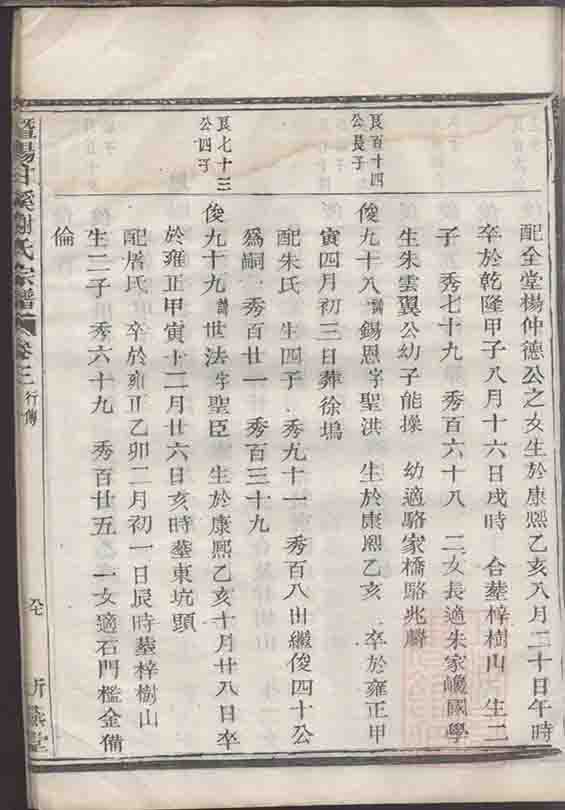 配全堂楊仲德公之女生於康熙乙亥八月二十日午時
卒於乾隆甲子八月十六日戌時 合塟梓樹山 生二
子 秀七十九 秀百六十八 二女長適朱家 國學
生朱雲翼公幼子能操 幼適駱家橋駱兆麟
艮百十四
公長子
俊九十八諱錫恩字聖洪 生於康熙乙亥 卒於雍正甲
寅四月初三日葬徐塢
配朱氏 生四子 秀九十一 秀百八出繼俊四十公
爲嗣 秀百廿一 秀百三十九
艮七十三
公四子
俊九十九諱世法字聖臣 生於康熙乙亥十月廿八日卒
於雍正甲寅十二月廿六日亥時塟東坑頭
配屠氏 卒於雍正乙卯二月初一日辰時塟梓樹山
生二子 秀六十九 秀百廿五 一女適石門檻金備
倫
暨陽甘溪謝氏宗譜 卷三 行傳